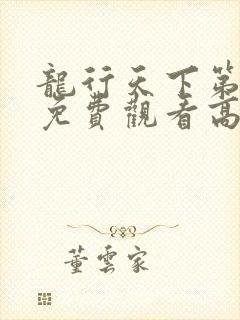 龍行天下第
免費觀看高
董雲家